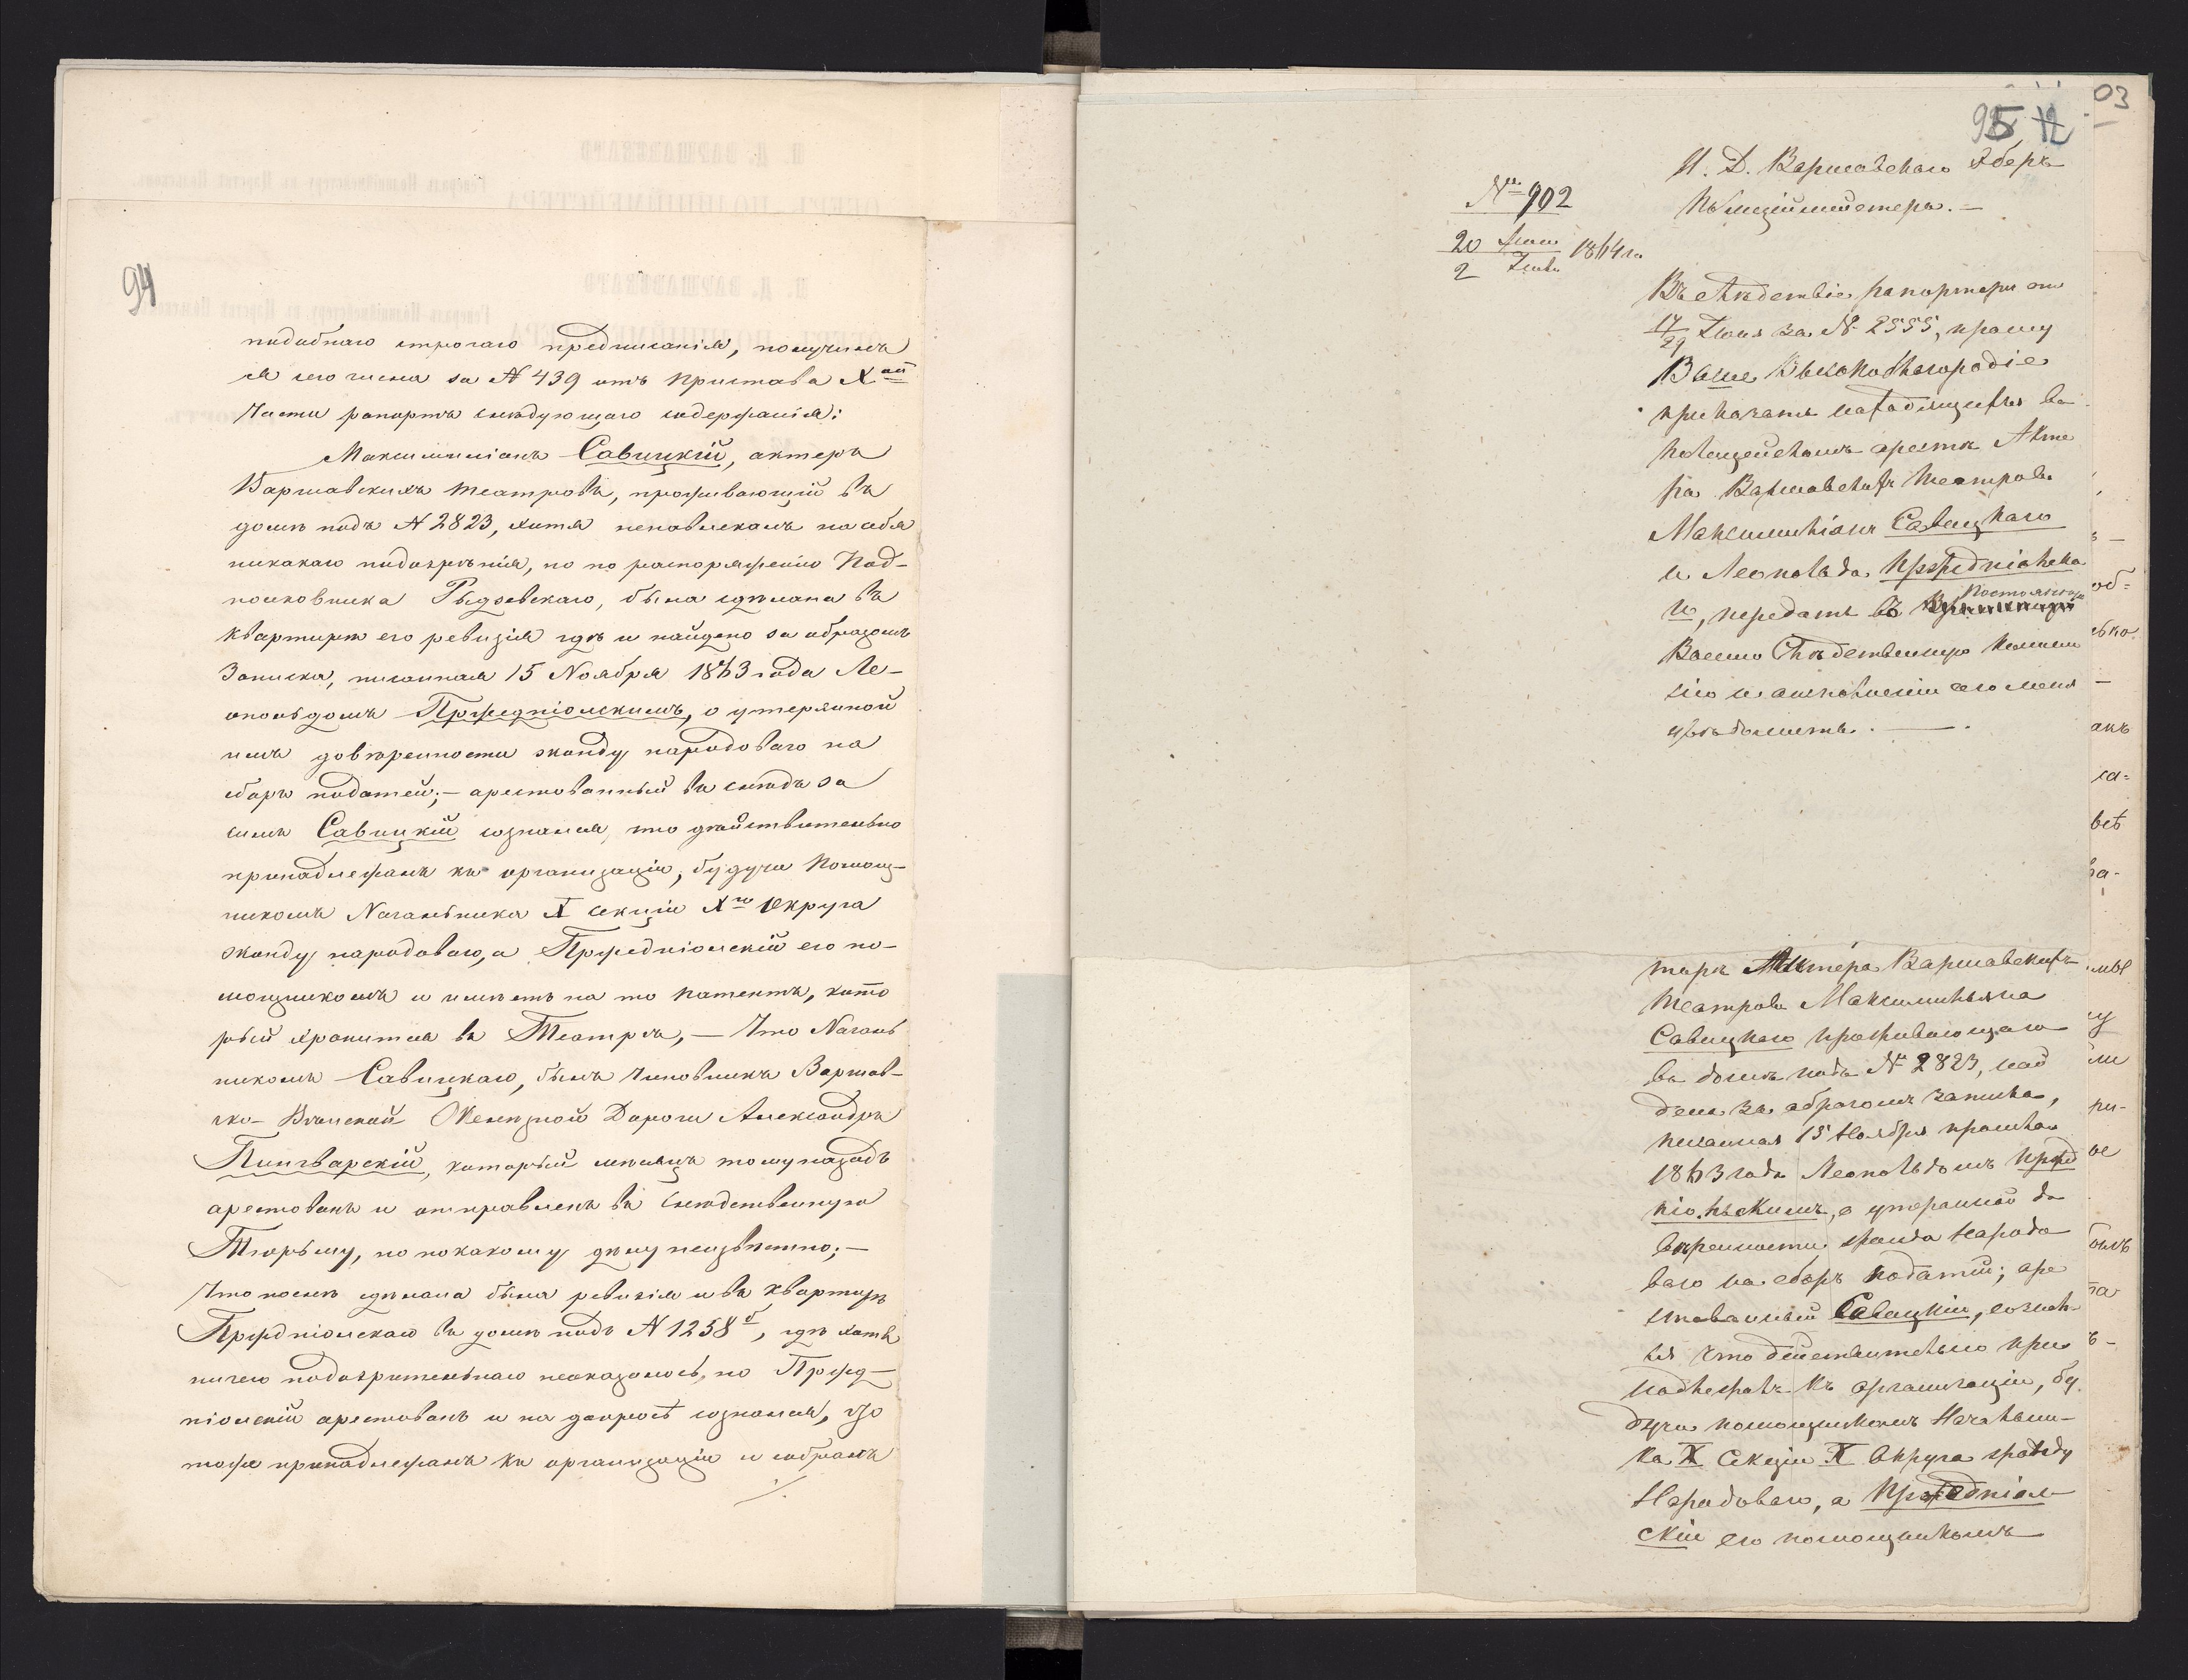 94
подобнаго строгаго предписанія, получилъ
я сего числа за № 439 отъ Пристава Xой
Части рапортъ слѣдующаго содержанія:
Максимиліанъ Савицкій, актеръ
Варшавскихъ театровъ, проживающій въ
домѣ подъ № 2823, хотя ненавлекалъ на себя
никакаго подозрѣнія, но по распоряженію Под-
полковника Рыдзевскаго, была сдѣлана въ
квартирѣ его ревизія гдѣ и найдено за образомъ
Записка, писанная 15 Ноября 1863 года Ле-
опольдомъ Пржедпіолскимъ, о утерянной
имъ довѣренности жонду народоваго на
сборъ податей; – арестованный въ слѣдъ за
симъ Савицкій сознался, что дѣйствительно
принадлежалъ къ организаціи, будучи Помощ-
никомъ Начальника X секціи Xго Округа
жонду народоваго, а Пржедпіолскій его по-
мощникомъ и имѣетъ на то патентъ, кото
рый хранится въ Театрѣ, – Что Началь
никомъ Савицкаго, былъ Чиновникъ Варшав-
ско-Вѣнской Желѣзной Дороги Александръ
Пингварскій, который мѣсяцъ тому назадъ
арестованъ и отправленъ въ Слѣдственную
Тюрьму, но по какому дѣлу неизвѣстно; –
Что послѣ сдѣлана была ревизія и въ квартирѣ
Пржедпіолскаго въ домѣ подъ № 1258 б, гдѣ хотя
ничего подозрительнаго неоказалось, но Пржед-
піолскій арестованъ и на допросѣ сознался, что
тоже принадлежалъ къ организаціи и собралъ
95 12
03
И. Д. Варшавскаго Оберъ
Полиціймейстера. –
№ 902
20 Іюня
2 Іюля 1864 го
Въ слѣдствіе рапорта отъ
17/29 Іюня за № 2555, прошу
Ваше Высокоблагородіе
приказать находящихся въ
полицейскомъ арестѣ Акте
ра Варшавскихъ театровъ
Максимиліана Савицкаго
и Леопольда Пржедпіольска
го, передать въ Постоянную
Военно Слѣдственную Коммис
сію и о исполненіи сего меня
увѣдомить. –
тирѣ Актера Варшавскихъ
театровъ Максимильяна
Савицкаго проживающаго
въ домѣ подъ № 2823, най
дена за образомъ записка,
писанная 15 Ноября прошлаго
1863 года Леопольдомъ Пржед
піольскимъ, о утерянной до
вѣренности жонда Народо
ваго на сборъ податей; аре
стованный Савицкій, сознал
ся что дѣйствительно при
надлежалъ къ организаціи, бу
дучи помощникомъ Начальни-
ка X Секціи X Округа жонду
Народоваго, а Пржедпіол
скій его помощникомъ
об=
ько
акъ
са=
всѣ
ва-
мы
ми
ри-
ое
былъ